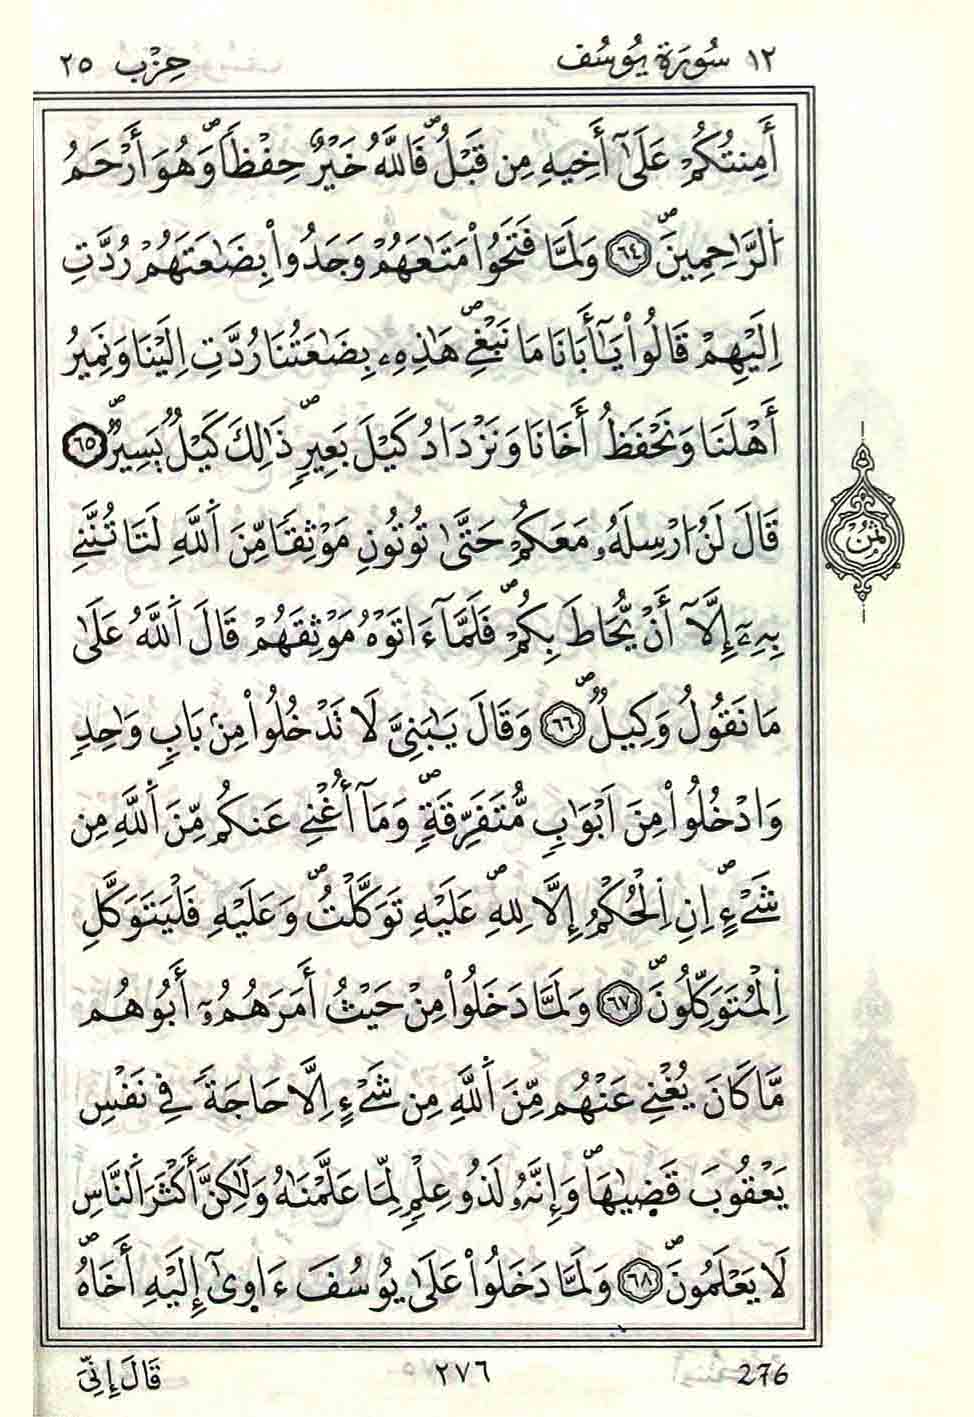 ١٢ سُورَة يُوسُف حِزْب ٢٥
أَمِنتُكُمْ عَلَىٰٓ أَخِيهِ مِن قَبْلُ فَاللَّهُ خَيْرٌ حِفْظاً وَهُوَ أَرْحَمُ
اُلرَّٰحِمِينَ ٦٤ وَلَمَّا فَتَحُواْ مَتَٰعَهُمْ وَجَدُواْ بِضَٰعَتَهُمْ رُدَّتِ
إِلَيْهِمْ قَالُواْ يَـٰٓأَبَانَا مَا نَبْغِے هَٰذِهِۦ بِضَٰعَتُنَا رُدَّتِ إِلَيْنَا وَنَمِيرُ
أَهْلَنَا وَنَحْفَظُ أَخَانَا وَنَزْدَادُ كَيْلَ بَعِيرٍ ذَٰلِكَ كَيْلٌ يَسِيرٌ ٦٥
قَالَ لَنُ ارْسِلَهُۥ مَعَكُمْ حَتَّىٰ تُوتُونِ مَوْثِقاً مِّنَ اَللَّهِ لَتَاتُنَّنِے
بِهِۦٓ إِلَّآ أَنْ يُّحَاطَ بِكُمْ فَلَمَّآ ءَاتَوْهُ مَوْثِقَهُمْ قَالَ اَللَّهُ عَلَىٰ
مَا نَقُولُ وَكِيلٌ ٦٦ وَقَالَ يَٰبَنِيَّ لَا تَدْخُلُواْ مِنۢ بَابٍ وَٰحِدٍ
وَادْخُلُواْ مِنَ اَبْوَٰبٍ مُّتَفَرِّقَةٍ وَمَآ أُغْنِے عَنكُم مِّنَ اَللَّهِ مِن
شَےْءٍ اِنِ اِلْحُكْمُ إِلَّا لِلهِ عَلَيْهِ تَوَكَّلْتُ وَعَلَيْهِ فَلْيَتَوَكَّلِ
اِلْمُتَوَكِّلُونَ ٦٧ وَلَمَّا دَخَلُواْ مِنْ حَيْثُ أَمَرَهُمُۥٓ أَبُوهُم
مَّا كَانَ يُغْنِے عَنْهُم مِّنَ اَللَّهِ مِن شَےْءٍ اِلَّا حَاجَةً فِے نَفْسِ
يَعْقُوبَ قَضَىٰهَا وَإِنَّهُۥ لَذُو عِلْمٍ لِّمَا عَلَّمْنَٰهُ وَلَٰكِنَّ أَكْثَرَ اَلنَّاسِ
لَا يَعْلَمُونَ ٦٨ وَلَمَّا دَخَلُواْ عَلَىٰ يُوسُفَ ءَاوِىٰٓ إِلَيْهِ أَخَاهُ
ثُمُن
قَالَ إِنِّيَ ٢٧٦ 276